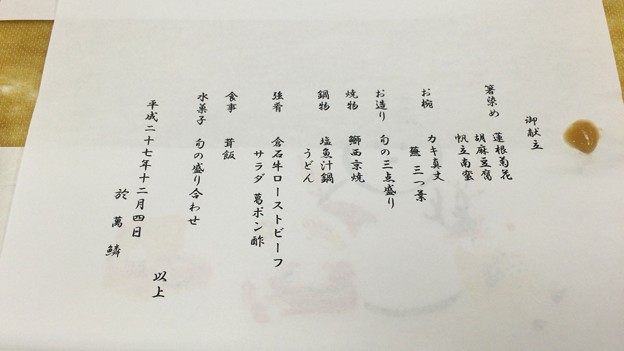 御献立
箸染め 蓮根菊花
胡麻豆腐
帆立南蛮
お椀 カキ真丈
蕪 三つ葉
お造り 旬の三点盛り
焼物 鰤西京焼
鍋物 塩魚汁鍋
うどん
強肴 倉石牛ローストビーフ
サラダ 葛ポン酢
食事 茸飯
水菓子 旬の盛り合わせ
以上
平成二十七年十二月四日
於 萬鱗